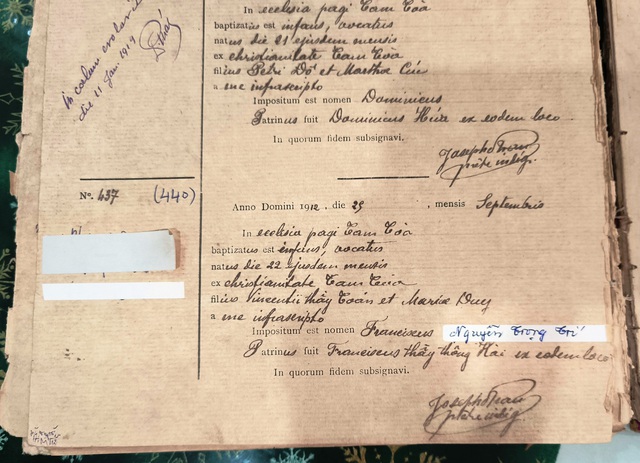 In ecclesia pagi Tam Tòa
baptizatus est infans, vocatus
natus die 21 ejusdem mensis
ex christianitate Tam Tòa
filius Petri Dô et Martha Cúc
a me infrascripto
Impositum est nomen Dominicus
Patrinus fuit Dominicus Hứa ex eodem loco
In quorum fidem subsignavi.
Joseph Tran
die 11 Jan. 1919
No. 437 (440)
Anno Domini 1912, die 25, mensis Septembris
In ecclesia pagi Tam Tòa
baptizatus est infans, vocatus
natus die 22 ejusdem mensis
ex christianitate Tam Tòa
filius Vincentii thầy Toản et Maria Duy
a me infrascripto
Impositum est nomen Franciscus Nguyễn Trọng Trí
Patrinus fuit Franciscus thầy thông Hài ex eodem loco
In quorum fidem subsignavi.
Joseph Tran